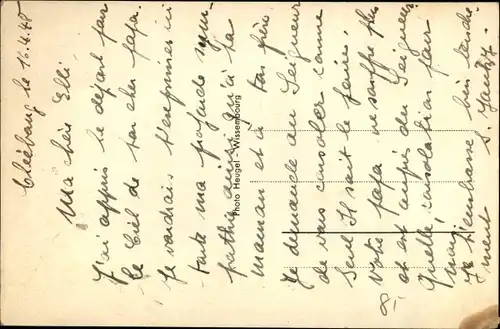 Cléebourg le 16.4.48
Ma chère Elli.
J'ai appris le départ pour
le Ciel de ton cher papa.
Je voudrais t'exprimer ici
toute ma profonde sym-
pathie ainsi qu'à ta
maman et à ton frère
Je demande au Seigneur
de vous consoler comme
seul Il sait le faire.
Votre papa ne souffre plus
et est auprès du Seigneur
Quelle consolation pour
vous!
Je t'embrasse bien tendre-
ment
Photo Heugel - Wissembourg